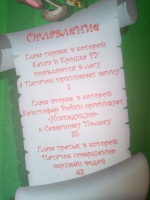 Оглавление
Глава первая, в которой
Кенга и Крошка Ру
появляются в лесу,
а Пятачок принимает ванну
3
Глава вторая, в которой
Кристофер Робин организует
«Искпедицию»
к Северному Полюсу
35
Глава третья, в которой
Пятачок совершенно
окружён водой
62